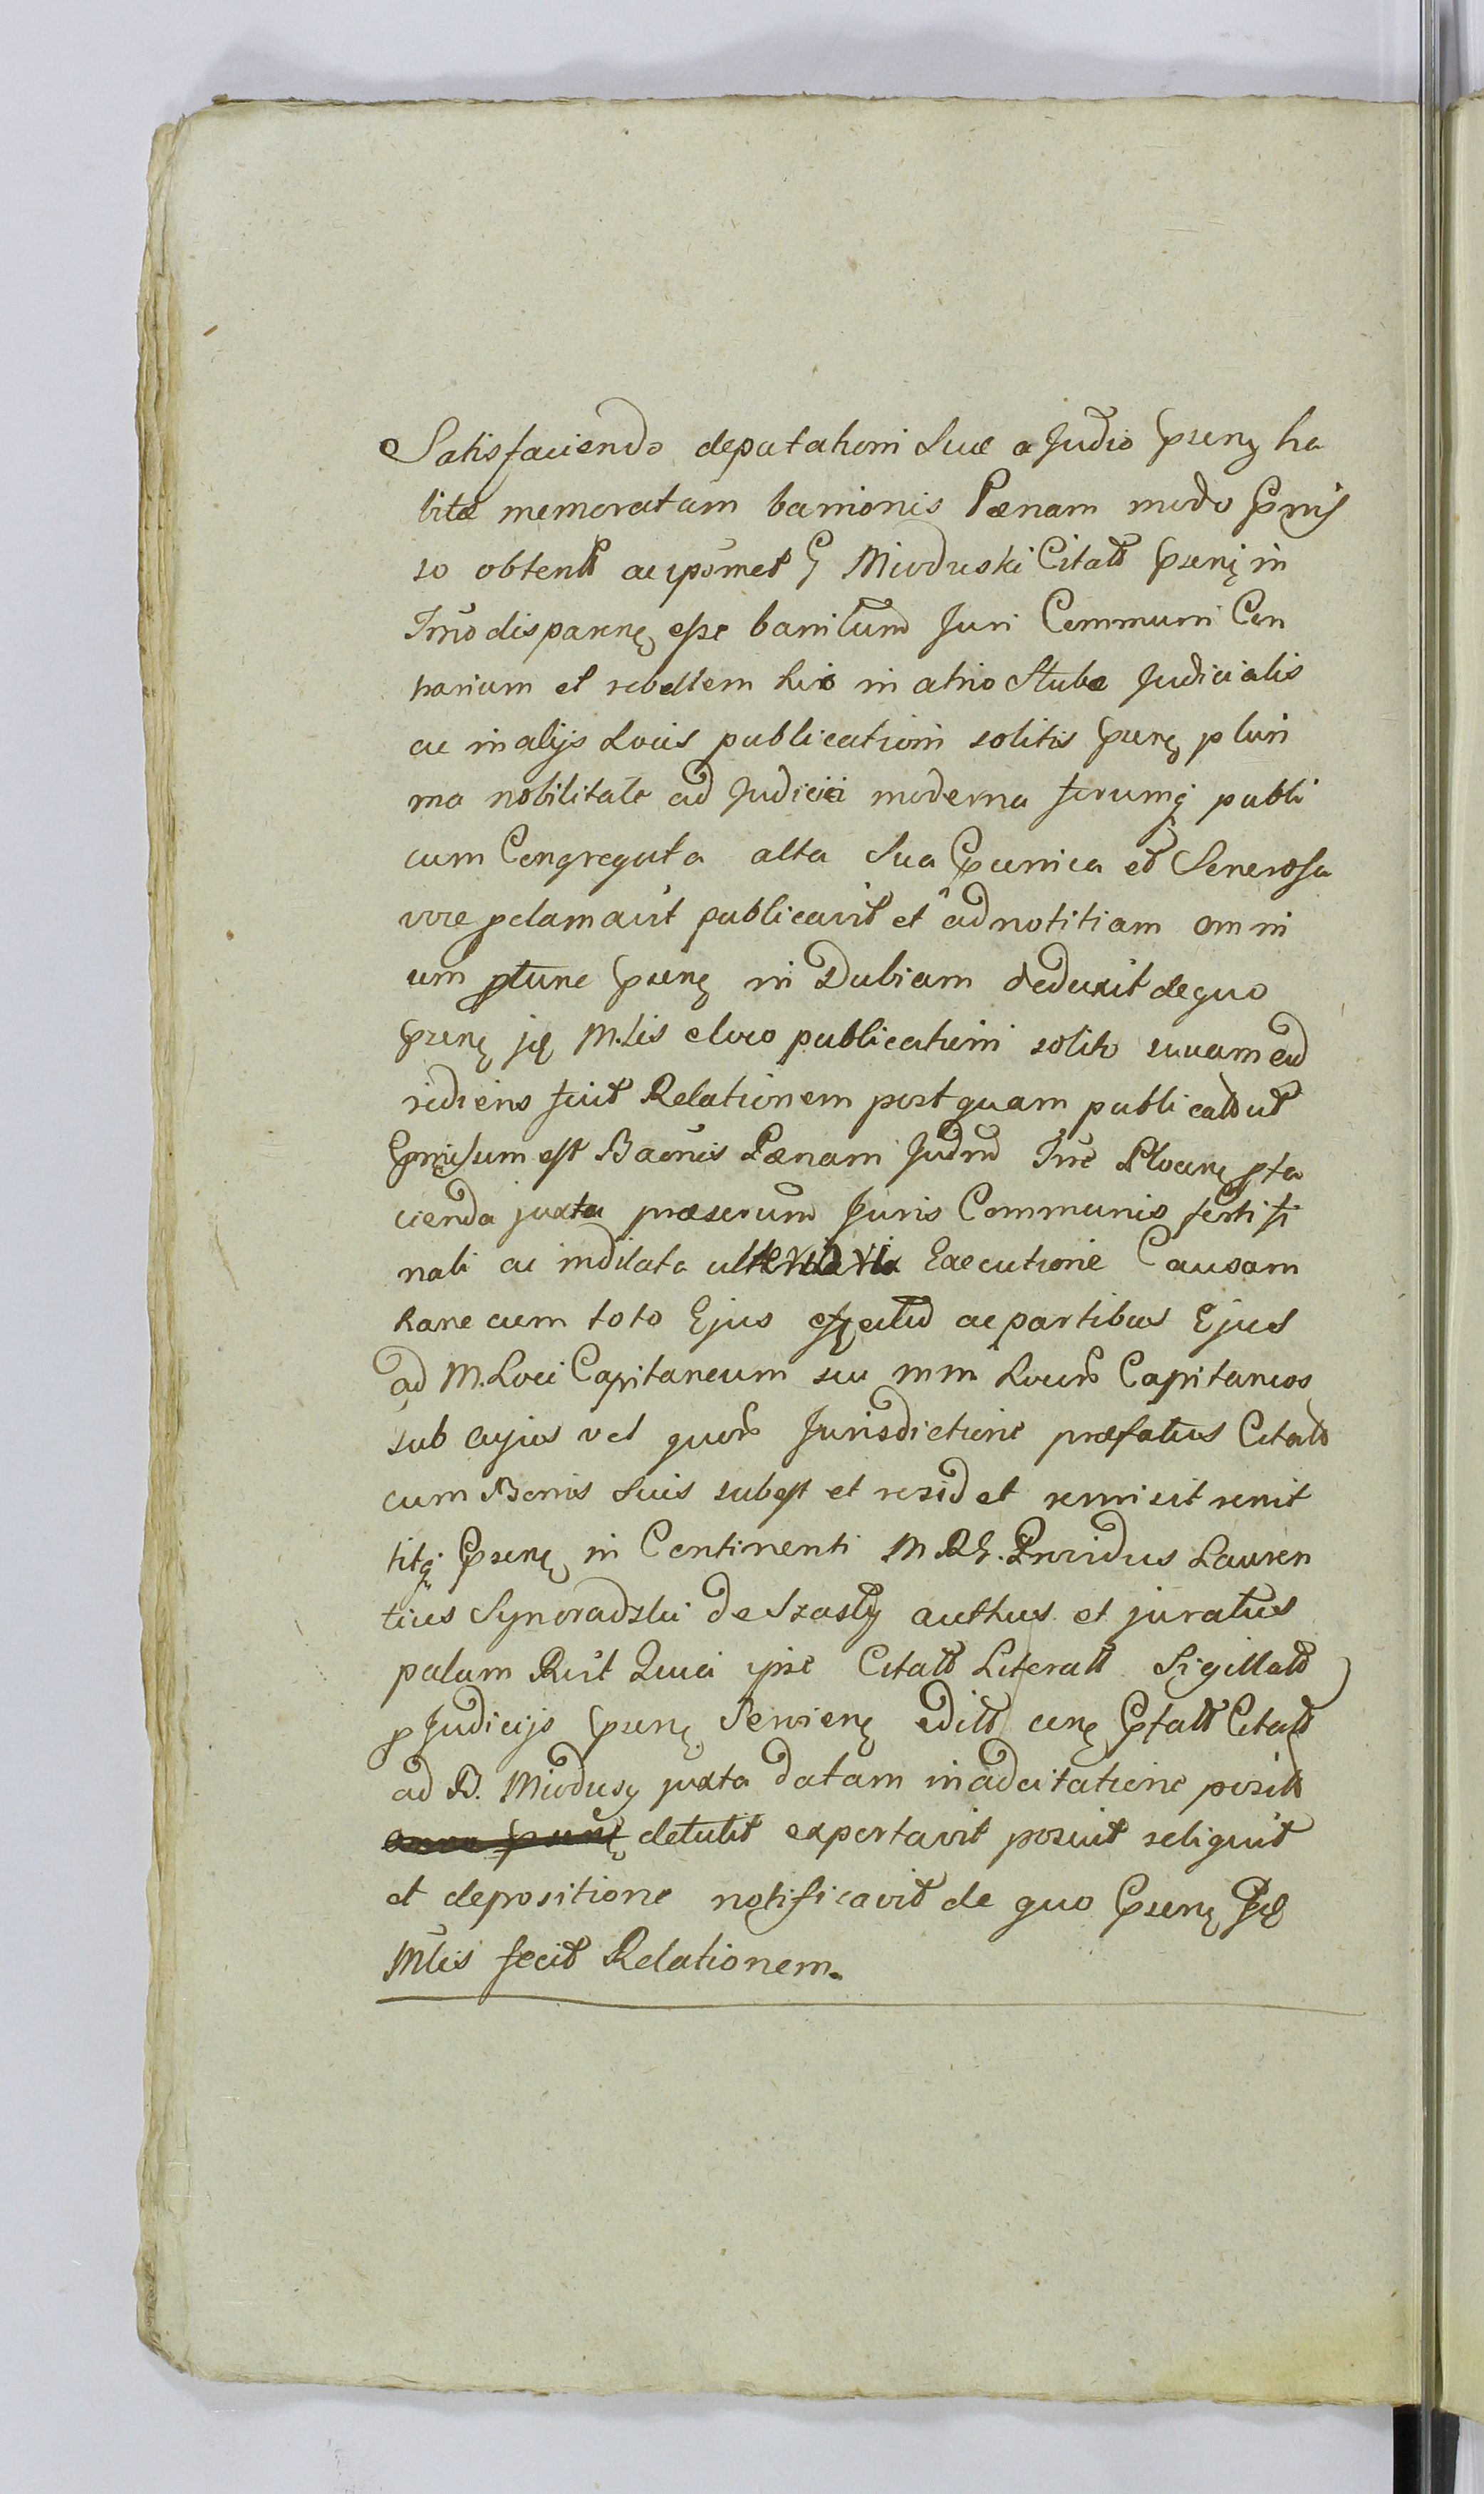 Satisfaciendo deputationi Suæ a Judio ha
bitæ memoratam bannionis Pænam modo
so obtent ac ipsmet G Mioduski Citatt in
Trrio disparen esse banitum Juri Communi Con
trarium et rebellem hic in atrio Stubæ Judicialis
ac in alijs Locis publicationi solitis pluri
ma nobilitate ad Judicia moderna forumq publi
cum Congregata alta Sua et Generosa
voce pclamavit publicavit et ad notitiam omni
um ptunc in Dubiam deduxit de quo
M.lis eloco publicationi solito suuam ad
rediens fecit Relationem post quam publicatt ut
est Banis Pænam Judm Trre Plocen pfa
cienda juxta præscrum Juris Communis
nali ac indilata Executione Causam
hanc cum toto Ejus effectu ac partibus Ejus
ad M. Loci Capitaneum seu mm Locur Capitaneos
sub cujus vel quor Jurisdictione præfatus Citatt
cum Bonis Suis subest et residet remisit remit
titq in Continenti M.RG. Providus Lauren
tius Synoradzki de Szasty authus et juratus
palam Rvit Quia ipse Citatt Literatt Sigillatt
p Judicijs editt Citatt
ad B. Miodusy juxta datam in adcitatione positt
detulit exportavit posuit reliquit
et depositione notificavit de quo
Mlis fecit Relationem.